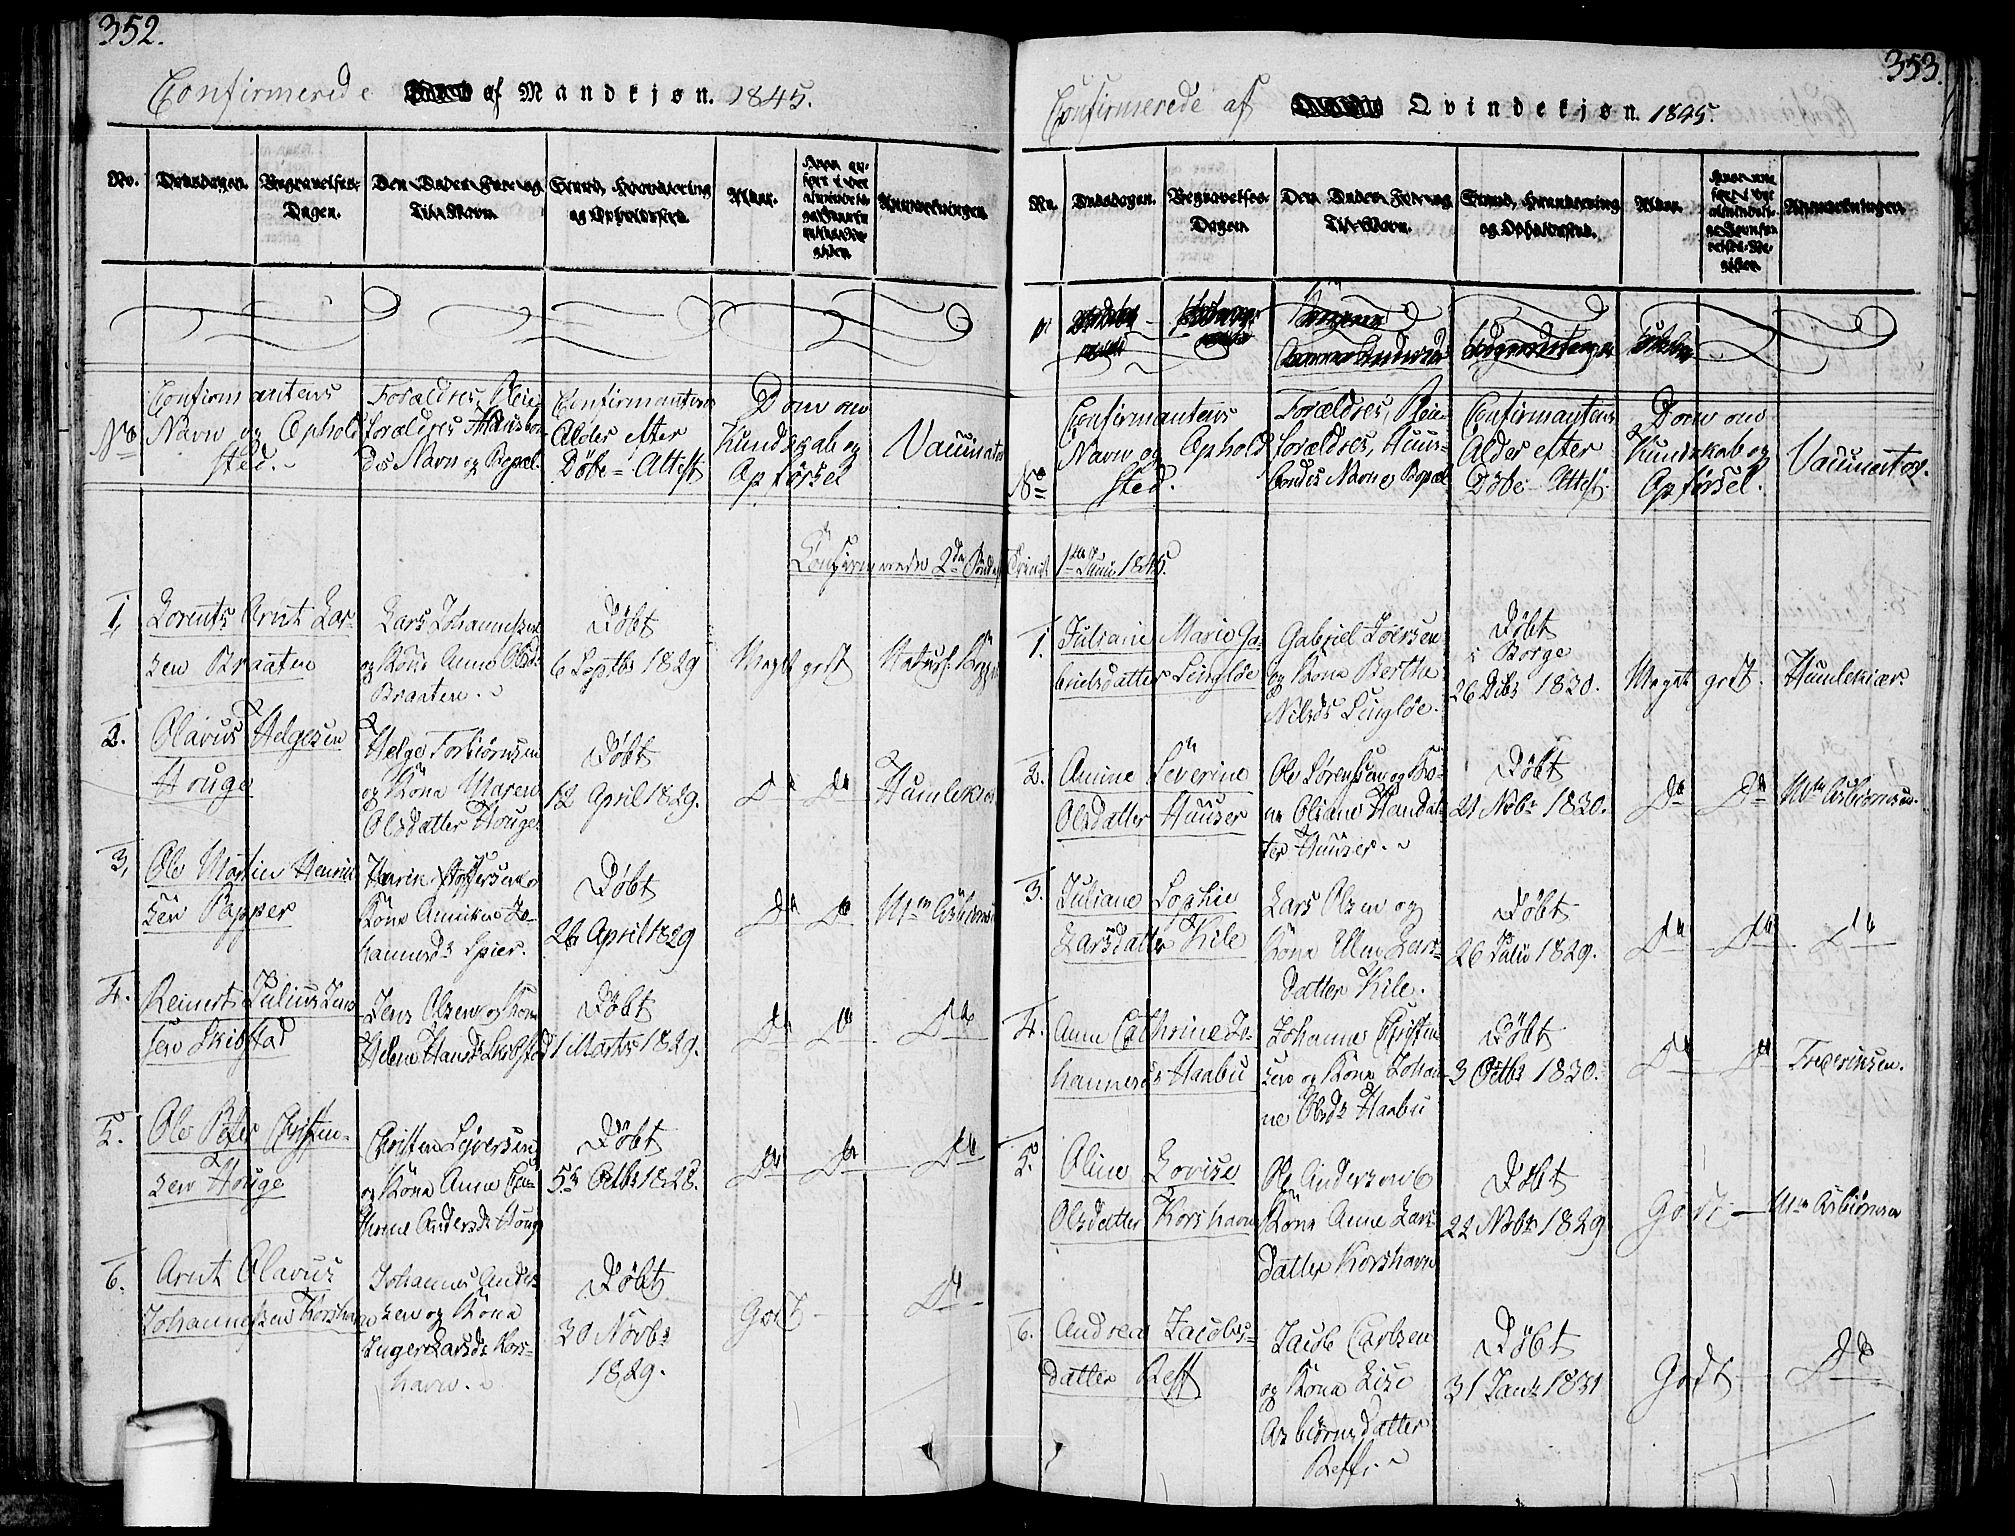 352.
Confirmerede af Mandkjøn. 1845.
No.
Dødsdagen.
Begravelses-
Dagen.
Den Dødes For- og
Til-Navn.
Stand, Haandtering
og Opholdssted.
Alder.
Anmærkninger.
No
Confirmantens
Navn og Ophold
sted.
Forældres, Pleie
forældres Huusbon
des Navn og Bopæl
Confirmantens
Alder efter
Döbe-Attest
Dom om
Kundskab og
Opförsel
Vaccinator
Confirmerede 2den Sönd. ef Trinit
1.
Lorents Arnt Lar-
sen Braaten
Lars Johannessen
og Kone Anne Olsd.
Braaten.
Döbt
6 Septbr 1829
Meget godt
Naturl. Kopper
2.
Olavus Helgesen
Houge
Helge Torbiörnsen
og Kone Maren
Olsdatter Houge
Döbt
12 April 1829.
Do Do
Humlekiær
3.
Ole Martin Henrik
sen Papper
Kone Anniken Jo-
hannesdr Spier.
Döbt
26 April 1829
Do Do
Mm Asbiörnsen
4.
Reinert Julius Jens
sen Skibstad
Jens Olsen og Kone
Helene Hansdr Skibstad
Döbt
1 Marts 1829.
Do Do
Do
5.
Ole Peter Christen-
sen Houge
Christen Syversen
og Kone Anne Ca-
thrine Andersdr Houge
Döbt
5 Octbr 1828.
Do Do
Do
6.
Arnt Olavus
Johannessen Korshavn
Johannes Anders
sen og Kone
Inger Larsdr Kors-
havn.
Döbt
30 Novbr
1829.
Godt
Do
353.
Confirmerede af Qvindekjøn. 1845.
No.
Dødsdagen.
Begravelses-
Dagen.
Den Dødes For- og
Til-Navn.
Stand, Haandtering
og Opholdssted.
Alder.
Anmærkninger.
No
Confirmantens
Navn og Ophold
sted.
Forældres, Pleie-
forældres, Huus-
bondes Navn og Bopæl
Confirmantens
Alder efter
Döbe-Attest
Dom om
Kundskab og
Opförsel.
Vaccinator.
1ste Juni 1845.
1.
Juliane Marie Ga-
brielsdatter Lunglöe
Gabriel Iversen
og Kone Berthe
Nilsdr Lunglöe.
Döbt
i Borge
26 Dcbr 1830.
Meget godt.
Humlekiær.
2.
Amine Severine
Olsdatter Hauser
Ole Sörensen og Ko-
ne Oliane Hansdat
ter Hauser.
Döbt
21 Novbr 1830.
Do Do
Mm Asbiörnsen.
3.
Juliane Sophie
Larsdatter Kile
Lars Olsen og
Kone Ellen Lars-
datter Kile.
Döbt
26 Julii 1829.
Do Do
Do
4.
Anne Cathrine Jo-
hannesdr Haabu
Johannes Christen
sen og Kone Johan
ne Olsdr Haabu
Döbt
3 Octbr 1830.
Do Do
Frederiksen.
5.
Oline Lovise
Olsdatter Korshavn
Ole Andersen og
Kone Anne Lars
datter Korshavn
Döbt
22 Novbr 1829
Godt
Mm Asbiörnsen
6.
Andrea Jacobs-
datter Reff
Jacob Carlsen
og Kone Lise
Asbiörnsdatter
Reff.
Döbt
31 Janr 1831
Godt
Do